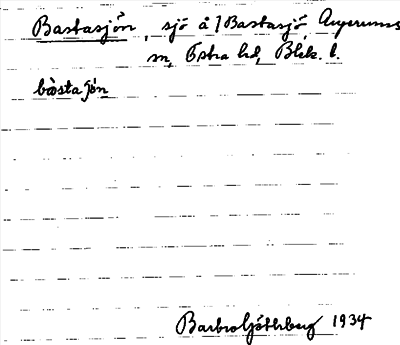 Bastasjön, sjö å /Bastasjö, Augerums
sn, Östra hd, Blek. l.
bàstaʃö́n
Barbro Göthberg 1934